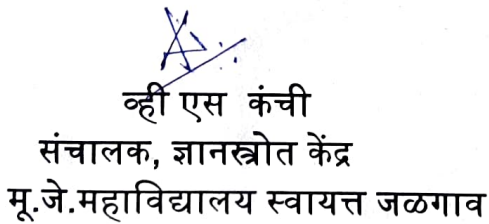 व्ही एस कंची
संचालक, ज्ञानस्त्रोत केंद्र
मू.जे.महाविद्यालय स्वायत्त जळगाव